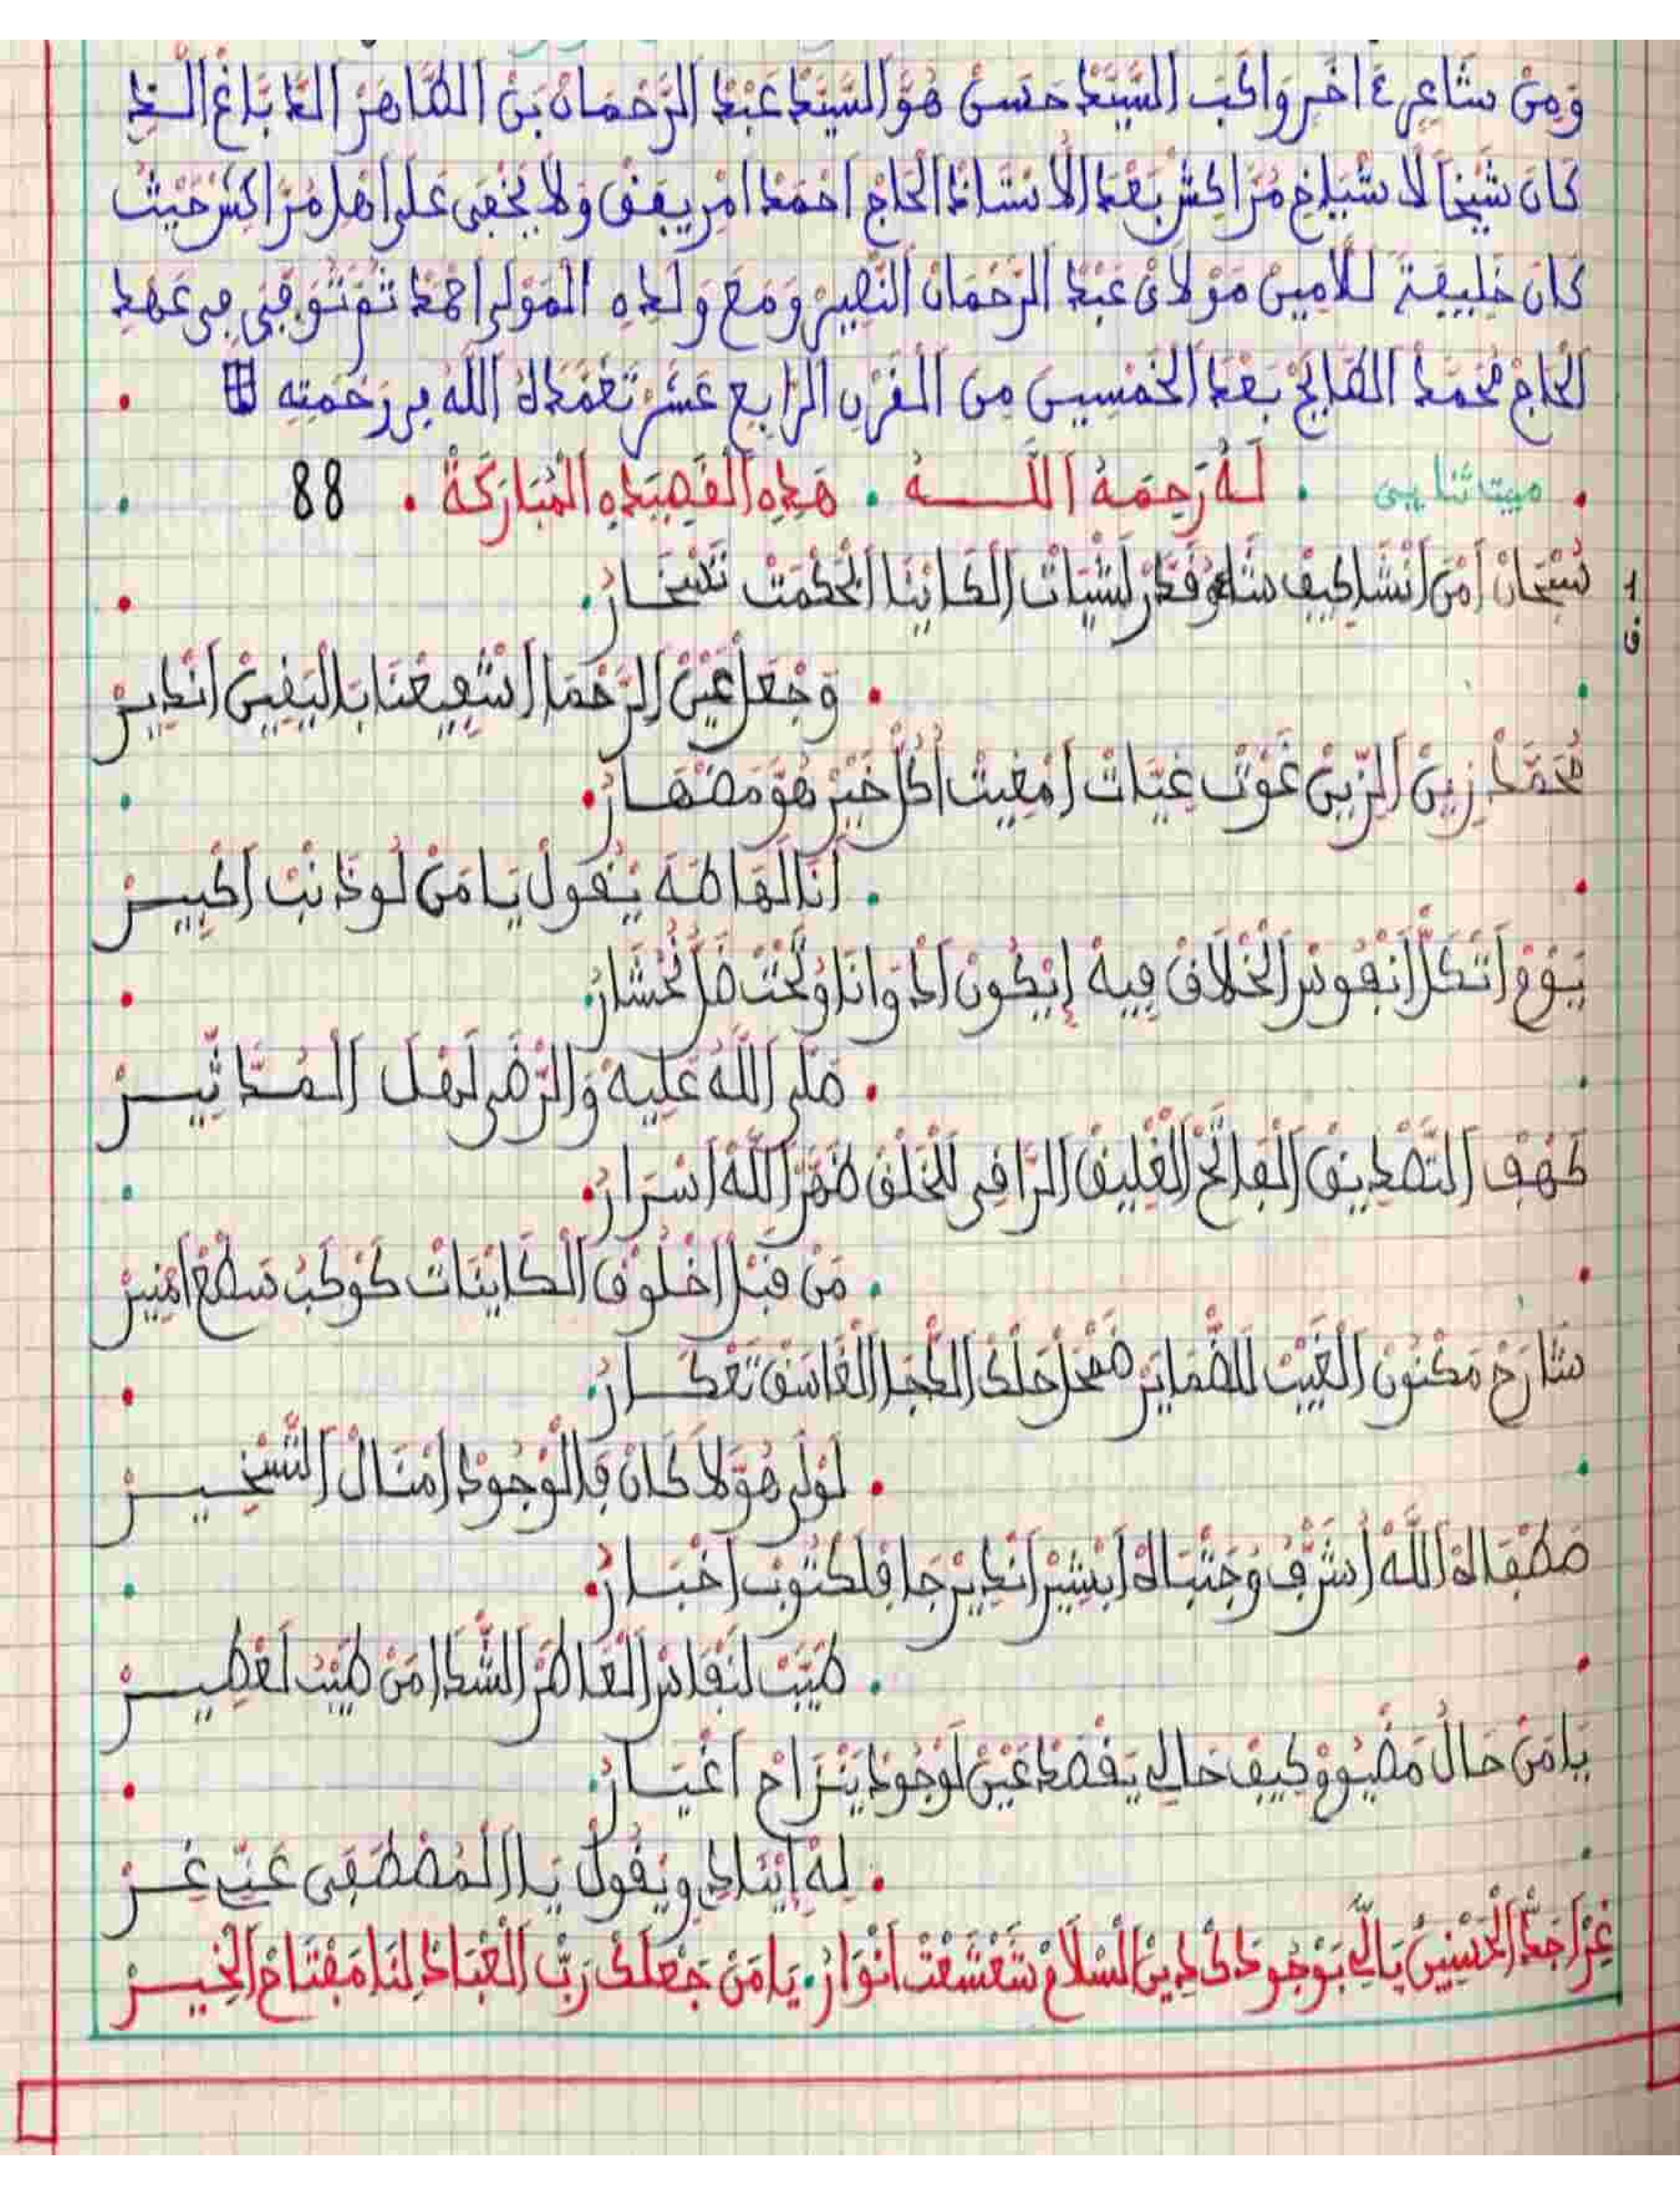 وَمِنْ شَاعِرٍ ءَاخَر وَاكَبَ السَّيِّدْ حَسَنْ هُوَ السَّيِّدْ عَبْدْ الرَّحْمَانْ بَنْ الطَّاهَرْ الدَّبَّاغ الَّذِ
كَانَ شَيْخاً لَاشْيَاخِ مُرَّاكش بَعْدَ الْاسْتَاذْ الْحَاجْ احْمَدْ امْرِيفَقْ وَلَا يَخْفَى عَلَى اهْلِ مُرَّاكِشْ حَيْثُ
كَانَ خَلِيفَةً لَلْأَمِينْ مَوْلَايْ عَبْدْ الرَّحْمَانْ النْصِيرْ وَمَعَ وَلَدِهِ الْمَوْلَى احْمَدْ ثُمَّ تُوُفِّيَ فِي عَهْدِ
الْحَاجْ مْحَمَّدْ الطَّالِحْ بَعْدَ الْخَمْسِينَ مِنَ الْقَرْنِ الرَّابِعِ عَشَرْ تَغَمَّدَهُ اللَّهُ فِي رَحْمَتِه
مبيت ثنايى . لَهُ رَحِمَهُ اللَّـــهُ . هَذِهِ الْقَصِيدَهِ الْمُبَارَكَةْ . 88
سُبْحَانْ اَمَنْ اَنْشَا كِيفْ شَاءْ وَقَدَّرْ لَشْيَاتْ الْكَايْنَا الْحُكْمَتْ تَسْخَـارُ
1 ف
وَجْعَلْ عَيْنْ الرَّحْمَا اشْفِيعْنَا بَالْيَقِينْ انْدِيـرْ
مُحَمَّدْ زِينْ الزِّينْ غَوْتْ غِيَّاتْ اَمْغِيتْ اَكُلّْ خَيْرْ هُوَ مَضْهَـارُ
اَنَا لَهَا طَهَ يْقُولْ يَا مَنْ لُو ذَنْبْ اَكْبِيـرْ
يَوْمْ اَتَّكَلّْ اَنْفُوسْ الْخْلَاقْ فِيهْ اِيْكُونْ الْدْوَا نَا وْتَحْتْ ضَلّْ نُحْشَارُ
صَلَّى اللَّهُ عَلِيهْ وَالرّْضَى لَهْلْ الْمُدَّاثِّيـرْ
كَهْفْ التَّصْدِيقْ الْفَاتَحْ الْغْلِيقْ الرَّاقِي لَلْخَلْقْ طَهَّرْ اللَّهْ اَسْرَارُ
مَنْ قَبْلْ اَخْلُوقْ الْكَايْنَاتْ كَوْكَبْ سَطْعْ اَمْنِيرْ
شَارَحْ مَكْنُونْ الْغَيْبْ لَلضّْمَايَرْ صْحَلْ حَلْكْ الدّْجَا الْغَاسَقْ تَعْكَـارُ
لَوْلَى هُوَ لَا كَانْ فَالْوْجُودْ اَمْتَالْ التَّسْخِيـرْ
صَطْفَاهْ اللَّهْ اَشْرَّفْ وَجْتْبَاهْ اَبْشِيرْ اَنْدِيرْ جَا فَلَكْتُوبْ اَخْبَـارُ
طَيَّبْ لَنْفَاسْ الْعَاطَرْ الشّْدَا مَنْ طَيْبْ لَعْطِيـرْ
يَا مَنْ حَالُ مَضْيُومْ كِيفْ حَالِي يَقْصَدْ عَيْنْ لَوْجُودْ يَنْزَاحْ اَغْيَـارُ
لِهْ اَيْنَادِي وِيْقُولْ يَا الْمُصْطَفَى عَنِّي غِـرْ
غِرْ اَجَدّْ الْحَسْنِينْ يَا لِّي بَوْجُودَكْ دِينْ السْلَامْ شَعْشَعْتْ اَنْوَارُ . يَا مَنْ جَعْلَكْ رَبّْ الْعْبَادْ لِنَا مَفْتَاحْ الْخِيـرْ